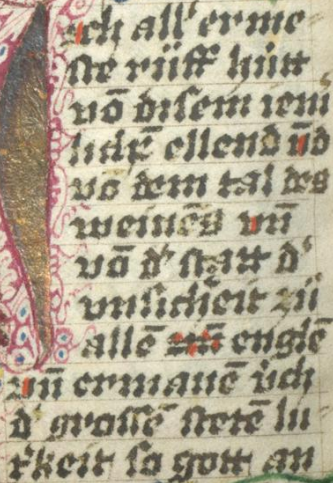 Ich all' erme
ste rüff hütt
vō disem jem
lichē ellend vn̄d
vō dem tal des
weinēs vn̄
vō d' statt d'
vnsicheit zü
allē englē
vn̄ ermanē üch
d' grossē stetē
so gott an